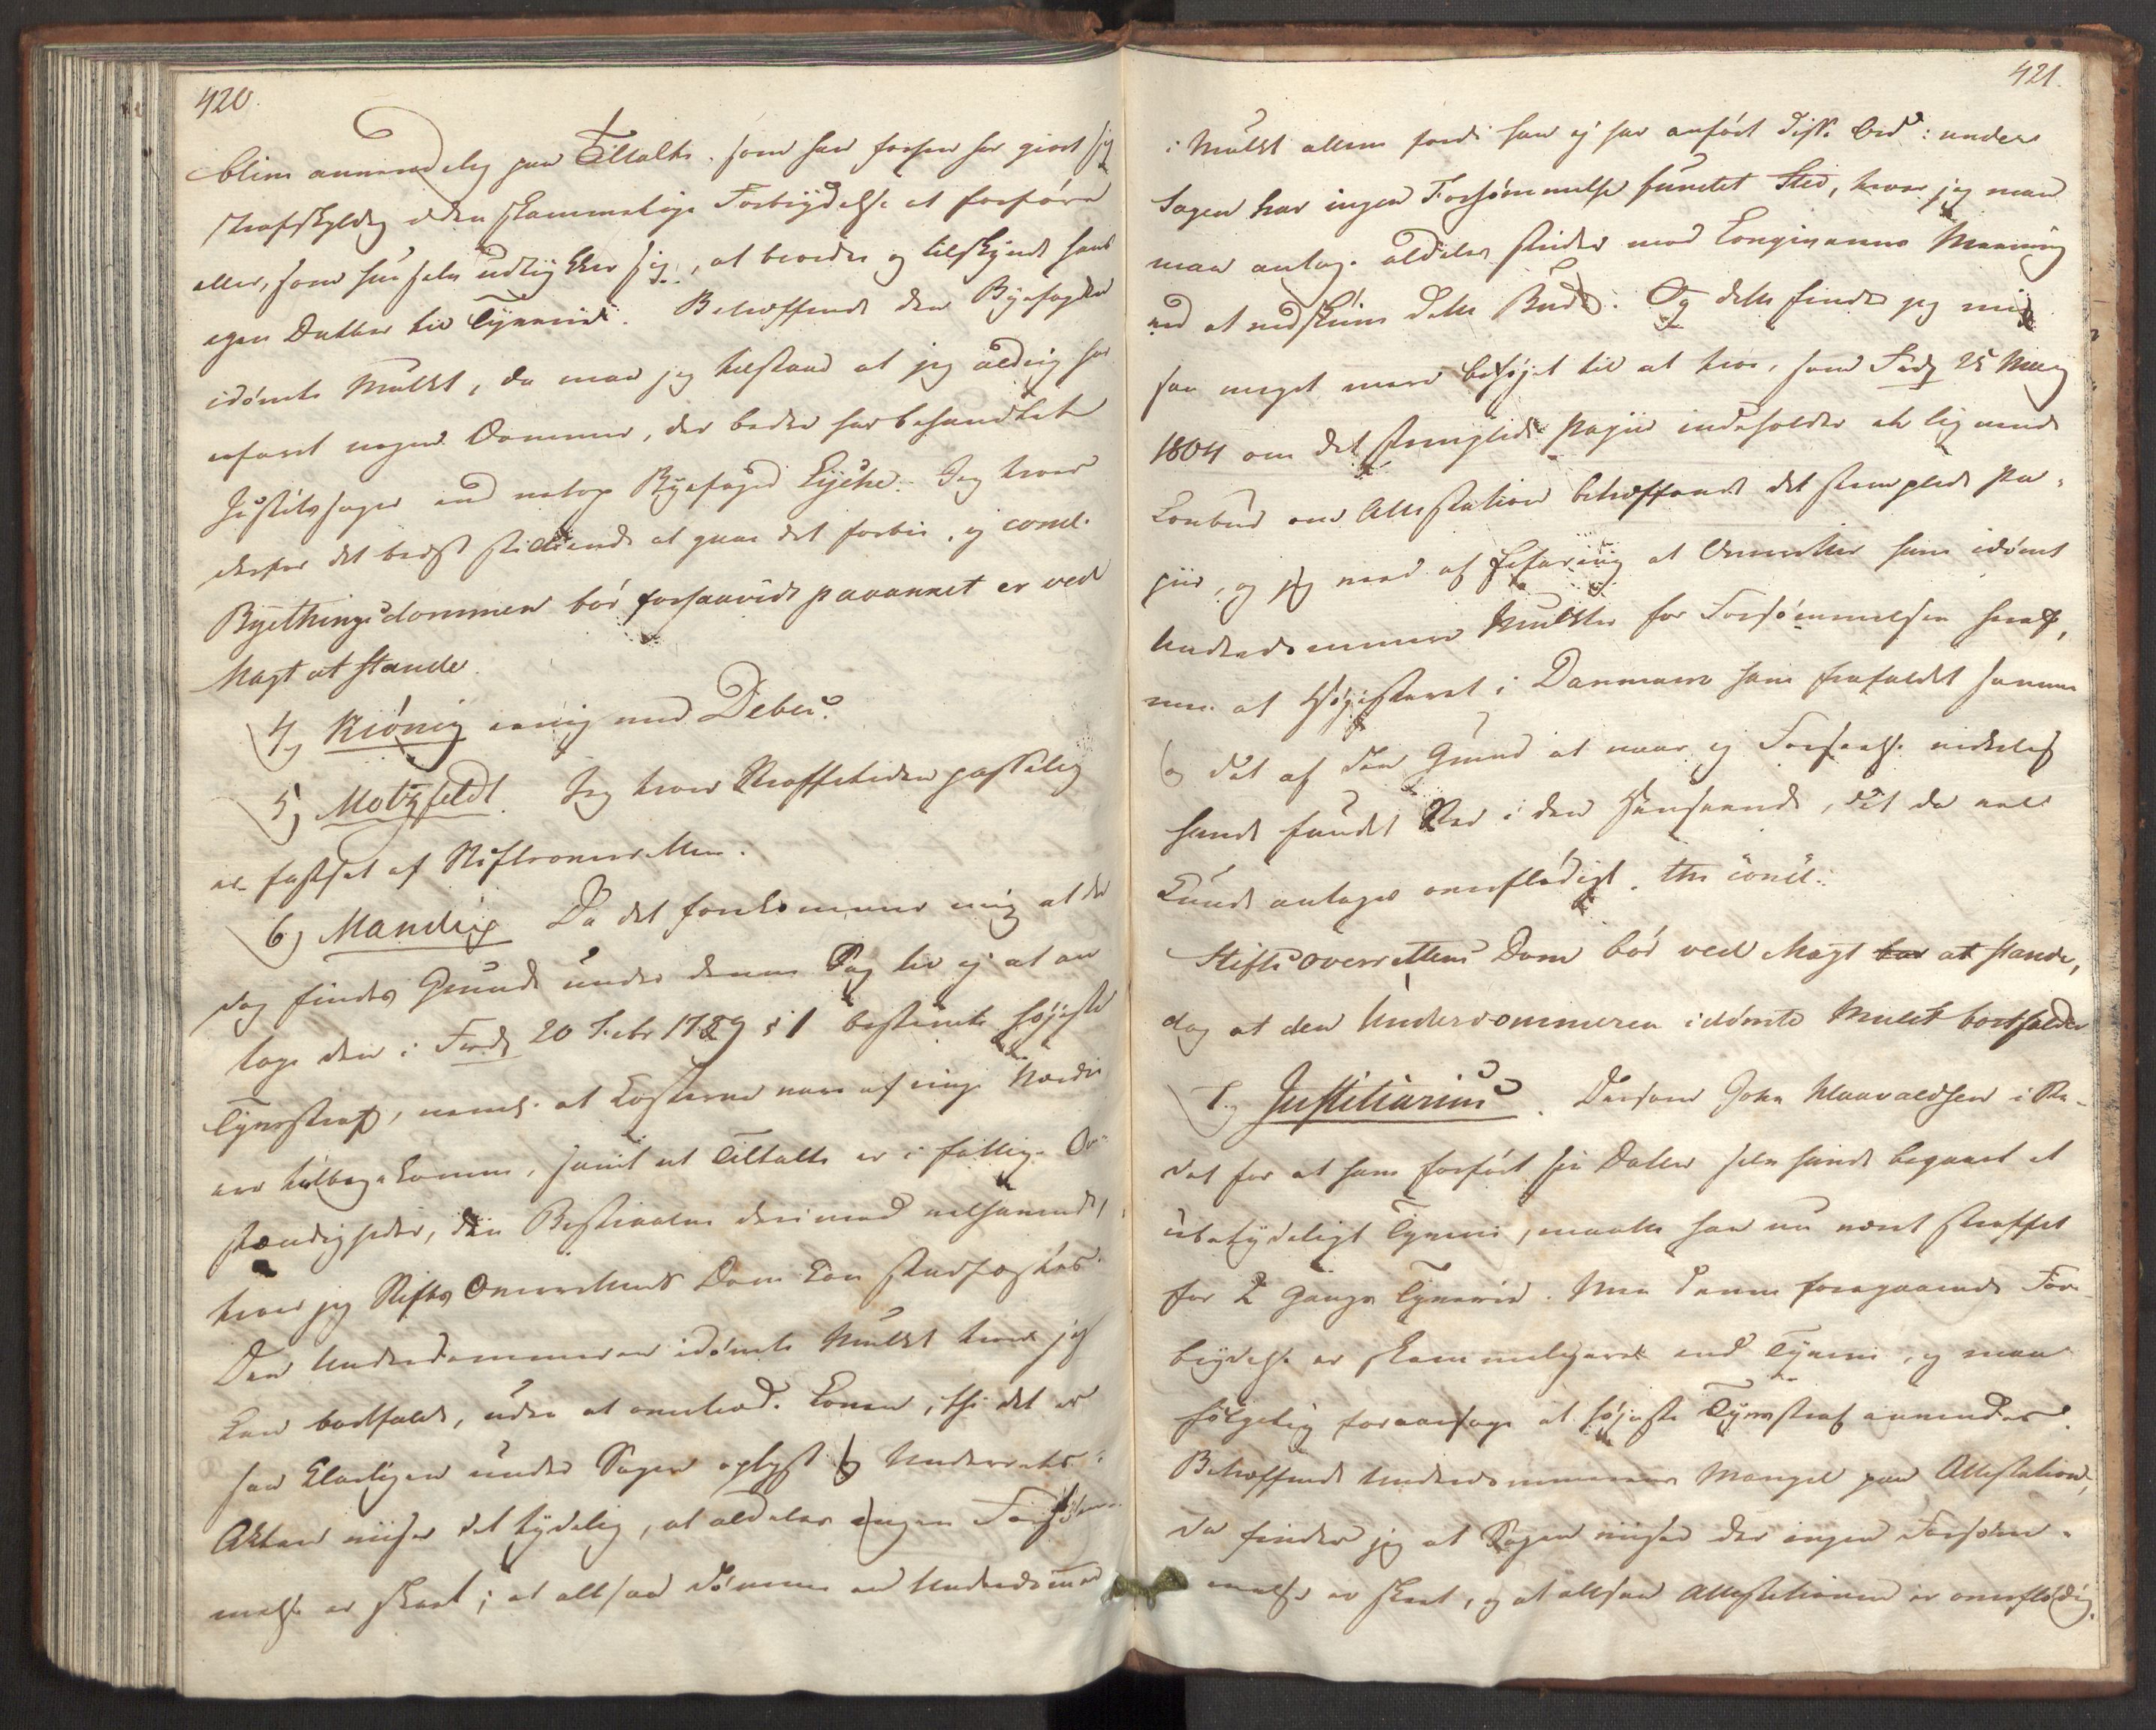 420.
blive anvendelig paa Tiltalte, som har forhen har giort sig
strafskyldig i den skammelige Forbrydelse at forføre
eller, som hun selv udtrykker sig, at berede og tilskynde hans
egen Datter til Tyverie. Betræffende den Byefogden
idømte Mulkt, da maa jeg tilstaae at jeg aldrig har
erfaret nogen Dommer, der bedre har behandlet
Justitssager end netop Byefoged Lycke. Jeg troer
derfor det bedst at gaae det forbie, og concl.
Byethingsdommen bør forsaavidt paaanket er ved
Magt at stande.
4, Kiønig eenig med Debes.
5, Motzfeldt. Jeg troer Straffetiden passelig
er fastsat af Stiftsoverretten.
6, Mandix Da det forekommer mig at der
dog findes Grunde under denne Sag til ej at an
tage den i Frdg 20 Febr 1789 § 1 bestemte højeste
Tyvsstraf, nemlig at Kosterne vare af ringe Værdie
ere tilbagekomne, samt at Tiltalte er i fattige Om
stændigheder, den Bestiaalne derimod velhavende,
troer jeg Stifts Overrettens Dom kan stadfæstes.
Den Underdommeren idømte Mulkt troer jeg
kan bortfalde, uden at overtræde Loven, thi det er
saa klarligen under Sagen oplyst og Underrets
Akten viser det tydelig, at aldeles ingen Forsøm
melse er skeet; at altsaa dømme en Underdommer
421.
i Mulkt allene fordi han ej har anført disse Ord: under
Sagen har ingen Forsømmelse fundet Sted, troer jeg man
maa antage aldeles strider mod Longivernes Meening
ved at nedskrive dette Bud. Og dette finder jeg mig
saa meget mere beføjet til at troe, som Frdg 25 Marz
1804 om det stemplede Papiir indeholder et lignende
Lovbud om Attestation betræffende det stemplede Pa-
piir, og jeg veed af Erfaring at Overretter have idømt
Underdommere Mulkter for Forsømmelsen heraf,
men at Højesteret i Danmark have frafaldet samme
og det af den Grund at naar ej Forseelse virkelig
havde fundet Sted i den Henseende, det da vel
kunde antages overflødigt. Thi concl:
Stiftsoverrettens Dom bør ved Magt bør at stande,
dog at den Underdommeren idømte Mulct bortfalder
7, Justitiarius. Dersom John Klaavaldsen i Ste-
det for at have forført sin Datter selv havde begaaet et
ubetydeligt Tyverie, maatte han nu været straffet
for 2 Gange Tyverie. Men denne foregaaende For-
brydelse er skammeligere end Tyverie, og maa
følgelig foraarsage at højeste Tyvsstraf anvendes.
Betræffende Underdommerens Mangel paa Attestation,
da finder jeg at Sagen viiser der ingen Forsøm-
melse er skeet, og at altsaa Attestationen er overflødig.